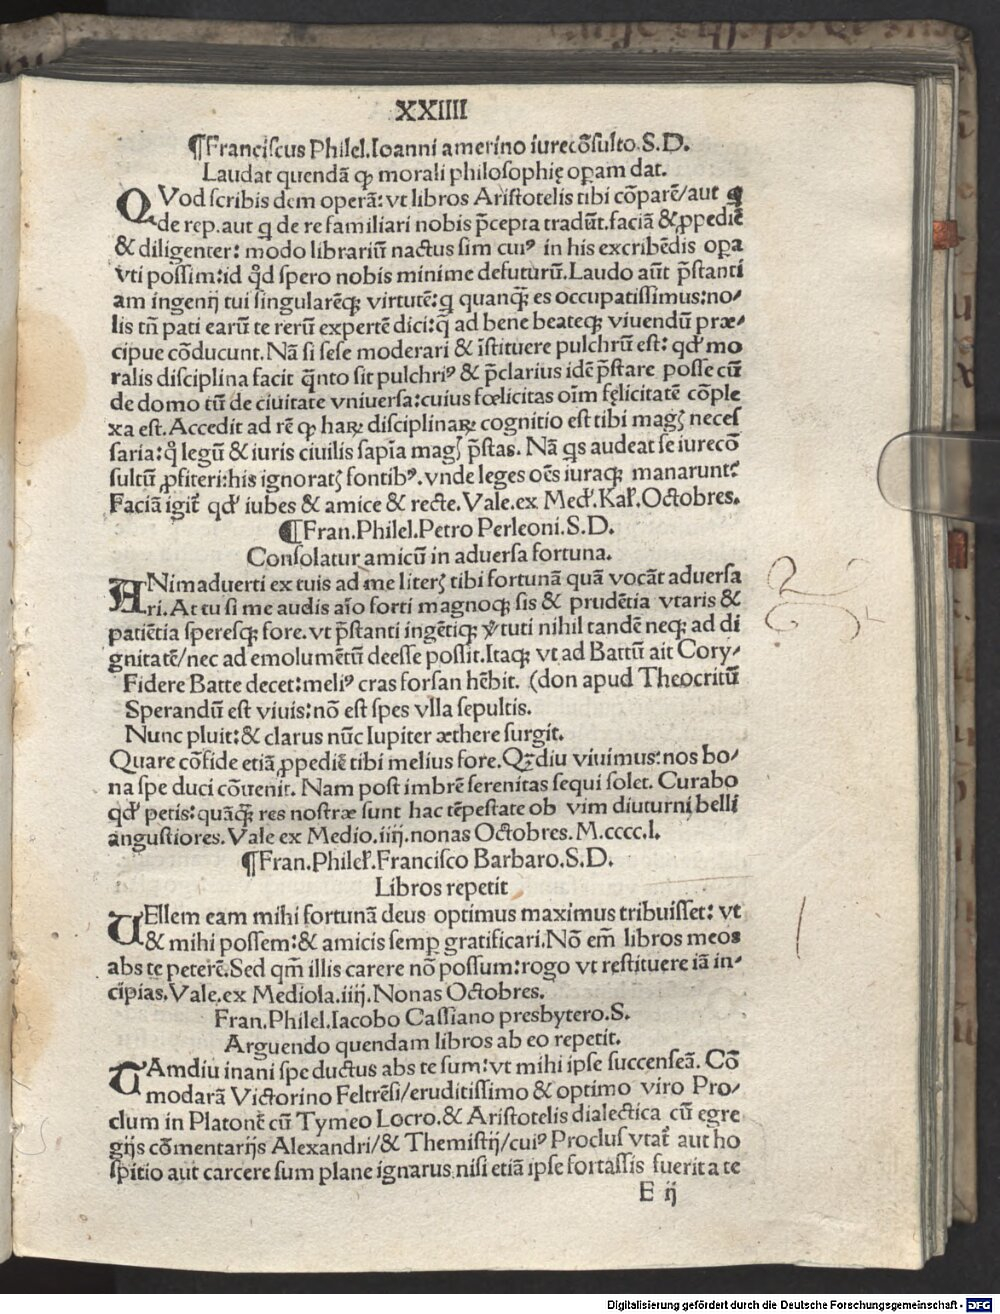 XXIIII
¶Franciscus Philel.Ioanni amerino iurecōsulto.S.D.
Laudat quendā ꝙ morali philosophię operam dat.
QVod scribis dem operā: vt libros Aristotelis tibi cōparē/aut q
de rep.aut q̄ de re familiari nobis p̄cepta tradūt.faciā & ꝓpediē
& diligenter: modo librariū nactus sim cuiꝰ in his excribēdis oꝑa
vti possim:id qd̄ spero nobis minime defuturū.Laudo aūt p̄stanti
am ingenij tui singularēqꝫ virtutē:q̄ quanqꝫ̄ es occupatissimus:no⸗
lis tn̄ pati earū te rerū expertē dici:q̄ ad bene beateqꝫ viuendū præ⸗
cipue cōducunt.Nā si sese moderari & īstituere pulchrū est: qd' mo
ralis disciplina facit q̄nto sit pulchriꝰ & p̄clarius idē p̄stare posse cū
de domo tū de ciuitate vniuersa:cuius fœlicitas oīm fęlicitatē cōple
xa est.Accedit ad rē ꝙ haꝝ disciplinaꝝ cognitio est tibi magꝭ neces
saria:q̄ legū & iuris ciuilis sapīa magꝭ p̄stas. Nā q̄s audeat se iurecō
sultū ꝓfiteri:his ignoratꝭ fontibꝰ.vnde leges oēs iuraqꝫ manarunt?
Faciā igit᷑ qd' iubes & amice & recte.Vale.ex Med'.Kal'.Octobres.
¶Fran.Philel.Petro Perleoni.S.D.
Consolatur amicū in aduersa fortuna.
ANimaduerti ex tuis ad me literꝭ tibi fortunā quā vocāt aduersa
ri.At tu si me audis aīo forti magnoqꝫ sis & prudētia vtaris &
patiētia speresqꝫ fore.vt p̄stanti ingētiqꝫ v̓tuti nihil tandē neqꝫ ad di
gnitatē/nec ad emolumētū deesse possit.Itaqꝫ vt ad Battū ait Cory⸗
Fidere Batte decet:meliꝰ cras forsan hēbit. (don apud Theocritū
Sperandū est viuis:nō est spes vlla sepultis.
Nunc pluit:& clarus nūc Iupiter æthere surgit.
Quare cōfide etiā ꝓpediē tibi melius fore.Qꝫ̄diu viuimus:nos bo⸗
na spe duci cōuenit. Nam post imbrē serenitas sequi solet. Curabo
qd' petis:quāqꝫ̄ res nostræ sunt hac tēpestate ob vim diuturni belli
angustiores.Vale ex Medio.iiij.nonas Octobres.M.cccc.l.
¶Fran.Philel'.Francisco Barbaro.S.D.
Libros repetit
VEllem eam mihi fortunā deus optimus maximus tribuisset: vt
& mihi possem:& amicis semꝑ gratificari.Nō em̄ libros meos
abs te peterē.Sed qm̄ illis carere nō possum:rogo vt restituere iā in⸗
cipias.Vale.ex Mediola.iiij.Nonas Octobres.
Fran.Philel.Iacobo Cassiano presbytero.S.
Arguendo quendam libros ab eo repetit.
TAmdiu inani spe ductus abs te sum:vt mihi ipse succenseā. Cō
modarā Victorino Feltrēsi/eruditissimo & optimo viro Pro⸗
clum in Platonē cū Tymeo Locro.& Aristotelis dialectica cū egre
gijs cōmentarijs Alexandri/& Themistij/cuiꝰ Proclus vtat᷑ aut ho
spitio aut carcere sum plane ignarus nisi etiā ipse fortassis fuerit a te
E ij
Digitalisierung gefördert durch die Deutsche Forschungsgemeinschaft - DFG